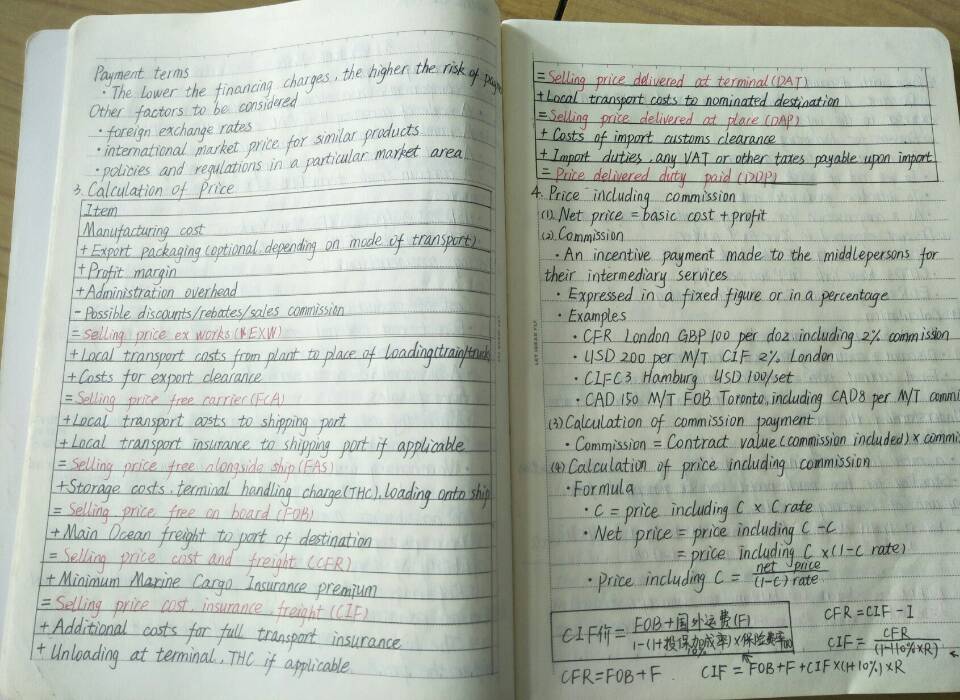 Payment terms
· The lower the financing charges, the higher the risk of
Other factors to be considered
· foreign exchange rates
· international market price for similar products
· policies and regulations in a particular market area
3. Calculation of Price
Item
Manufacturing cost
+ Export packaging (optional, depending on mode of transport)
+ Profit margin
+ Administration overhead
- Possible discounts/rebates/sales commission
= Selling price ex works (EXW)
+ Local transport costs from plant to place of loading(train/truck
+ Costs for export clearance
= Selling price free carrier (FCA)
+ Local transport costs to shipping port
+ Local transport insurance to shipping port if applicable
= Selling price free alongside ship (FAS)
+ Storage costs, terminal handling charge (THC), loading onto ship
= Selling price free on board (FOB)
+ Main Ocean freight to part of destination
= Selling price cost and freight (CFR)
+ Minimum Marine Cargo Insurance premium
= Selling price cost, insurance, freight (CIF)
+ Additional costs for full transport insurance
+ Unloading at terminal, THC if applicable
= Selling price delivered at terminal (DAT)
+ Local transport costs to nominated destination
= Selling price delivered at place (DAP)
+ Costs of import customs clearance
+ Import duties, any VAT or other taxes payable upon import
= Price delivered duty paid (DDP)
4. Price including commission
(1). Net price = basic cost + profit
(2). Commission
· An incentive payment made to the middlepersons for
their intermediary services
· Expressed in a fixed figure or in a percentage
· Examples
· CFR London GBP 100 per doz including 2% commission
· USD 200 per M/T CIF 2% London
· CIFC3 Hamburg USD 100/set
· CAD 150 M/T FOB Toronto, including CAD8 per M/T
(3) Calculation of commission payment
· Commission = Contract value (commission included) ×
(4) Calculation of price including commission
· Formula
· C = price including C × C rate
· Net price = price including C - C
= price including C × (1 - C rate)
· Price including C = net price / (1-C) rate
CIF价 = FOB+国外运费(F) / 1-(1+投保加成率)×保险费率
10%
CFR = CIF - I
CIF = CFR / (1-110%×R)
CFR = FOB + F
CIF = FOB + F + CIF × (1+10%) × R